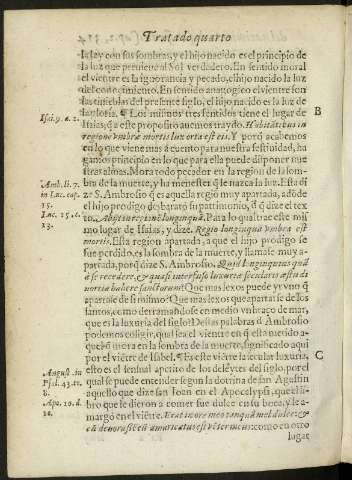 Tratado quarto
la ley con sus sombras, y el hijo nacido es el principio de
la luz que predixo al Sol verdadero. En sentido moral
el vientre es la ignorancia y pecado, el hijo nacido la luz
del conocimiento. En sentido anatogico el vientre son
las tinieblas del presente siglo, el hijo nacido es la luz de
la gloria. ¶ Los mismos tres sentidos tiene el lugar de
Isai. 9. a. 2.
Isaias, q̃ a este proposito auemos traydo. Habitãtibus in
B
regione vmbræ mortis lux orta est eis. Y porq̃ acabemos
en lo que viene mas a cuento para nuestra festiuidad, ha
gamos principio en lo que para ella puede disponer nue
stras almas. Mora todo pecador en la region de la som-
Amb. li. 7.
bra de la muerte, y ha menester q̃ le nazca la luz. Esta di
in Luc. cap.
ze S. Ambrosio q̃ es aquella regiõ muy apartada, adõde
15.
el hijo prodigo desbaratò su patrimonio, q̃ dize el tex
Luc. 15. c.
to. Abijt in regionẽ longinquã. Para lo qual trae este mis
13.
mo lugar de Isaias, y dize. Regio longinquã vmbra est
mortis. Esta region apartada, a que el hijo prodigo se
fue perdido, es la sombra de la muerte, y llamase muy a-
partada, porq̃ dize S. Ambrosio. Quid longinquius quã
a se recedere, & quasi interfuso luxuriæ secularis æstu di
uortia habere sanctorum? Que mas lexos puede yr vno q̃
apartase de si mismo? Que mas lexos que apartarse de los
santos, como derramandose en medio vn braço de mar,
que es la luxuria del siglo? Destas palabras S. Ambrosio
podemos coligir, qual sea el vientre en q̃ està metido a-
quel q̃ mora en la sombra de la muerte, significado aqui
por el viẽtre de Isabel. ¶ Es este viẽtre la secular luxuria,
C
esto es el sensual apetito de los deleytes del siglo, por el
August. in
qual se puede entender segun la dotrina de san Agustin
Psal. 43. to.
8.
aquello que dize san Ioan en el Apocalypsi, que el li-
Apo. 10. d.
bro que le dieron a comer fue dulce en su boca, y le a-
10.
margò en el viẽtre. Erat in ore meo tanquã mel dulce: &
cũ deuorassẽ eũ amaricatus est vẽter meus: como en otro
lugar